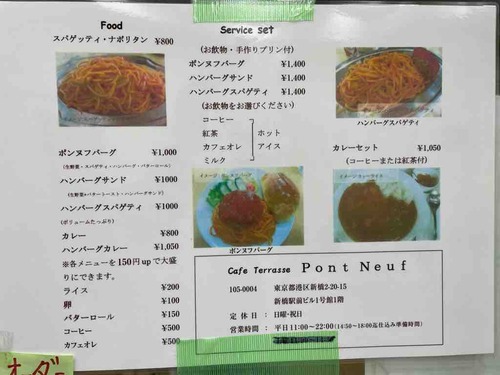 Food
スパゲッティ・ナポリタン ¥800
ボンヌフバーグ ¥1,000
(生野菜+スパゲティ・ハンバーグ・バターロール)
ハンバーグサンド ¥1000
(生野菜+バタートースト・ハンバーグサンド)
ハンバーグスパゲティ ¥1000
(ボリュームたっぷり)
カレー ¥800
ハンバーグカレー ¥1,050
※各メニューを150円upで大盛
りにできます。
ライス ¥200
卵 ¥100
バターロール ¥150
コーヒー ¥500
カフェオレ ¥500
Service set
(お飲物・手作りプリン付)
ポンヌフバーグ ¥1,400
ハンバーグサンド ¥1,400
ハンバーグスパゲティ ¥1,400
(お飲物をお選びください)
コーヒー
紅茶 ホット
カフェオレ アイス
ミルク
ポンヌフバーグ
ハンバーグスパゲティ
カレーセット ¥1,050
(コーヒーまたは紅茶付)
Cafe Terrasse Pont Neuf
105-0004 東京都港区新橋2-20-15
新橋駅前ビル1号館1階
定休日: 日曜・祝日
営業時間: 平日11:00~22:00(14:50~18:00迄仕込み準備時間)
オーダー